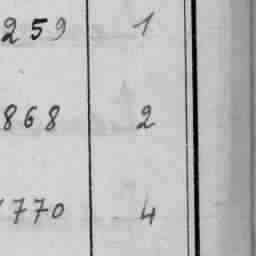 259 1
868 2
770 4